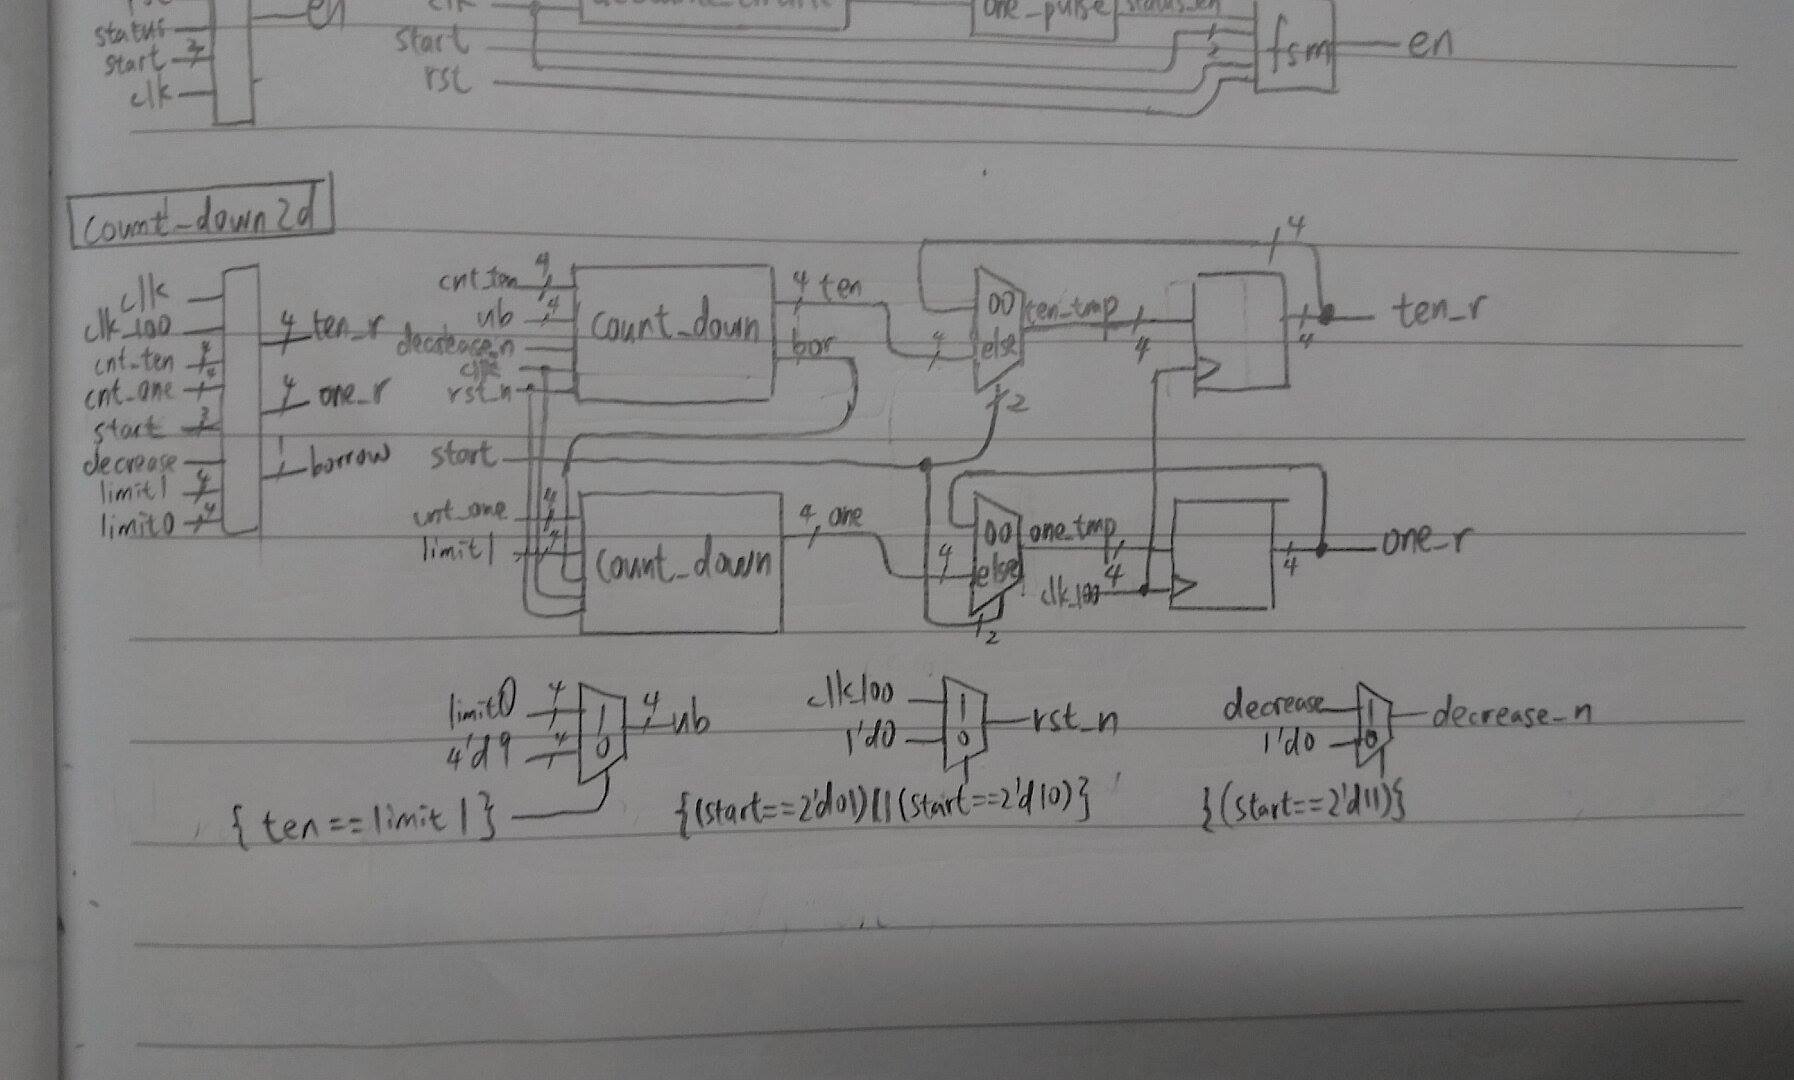 en
clk
one_pulse
status_en
status
start 2
clk
start
rst
1
2
fsm
en
count_down2d
clk
clk_100
cnt_ten 4
cnt_one 4
start 2
decrease
limit1 4
limit0 4
4 ten_r
4 one_r
1 borrow
cnt_ten 4
ub 4
decrease_n
clk
rst_n
count_down
4 ten
bor
4
00
else
2
ten_tmp
4
4
4
ten_r
start
cnt_one 4
limit1 4
count_down
4 one
4
00
else
2
one_tmp
4
clk_100
4
one_r
limit0 4
4'd9 4
1
0
4 ub
{ten==limit1}
clk_100
1'd0
1
0
rst_n
{(start==2'd01)||(start==2'd10)}
decrease
1'd0
1
0
decrease_n
{(start==2'd11)}